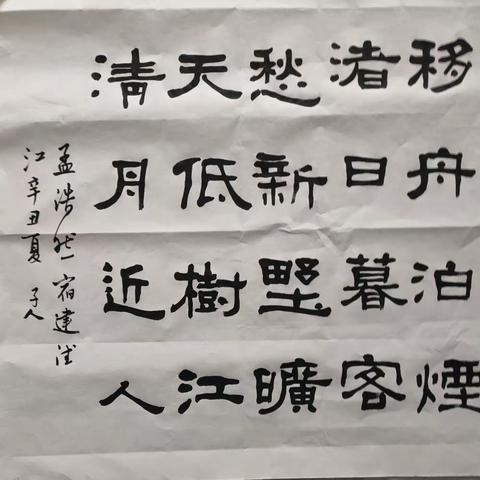 移舟泊煙
渚日暮客
愁新野曠
天低樹江
清月近人
孟浩然宿建德
江辛丑夏 子人